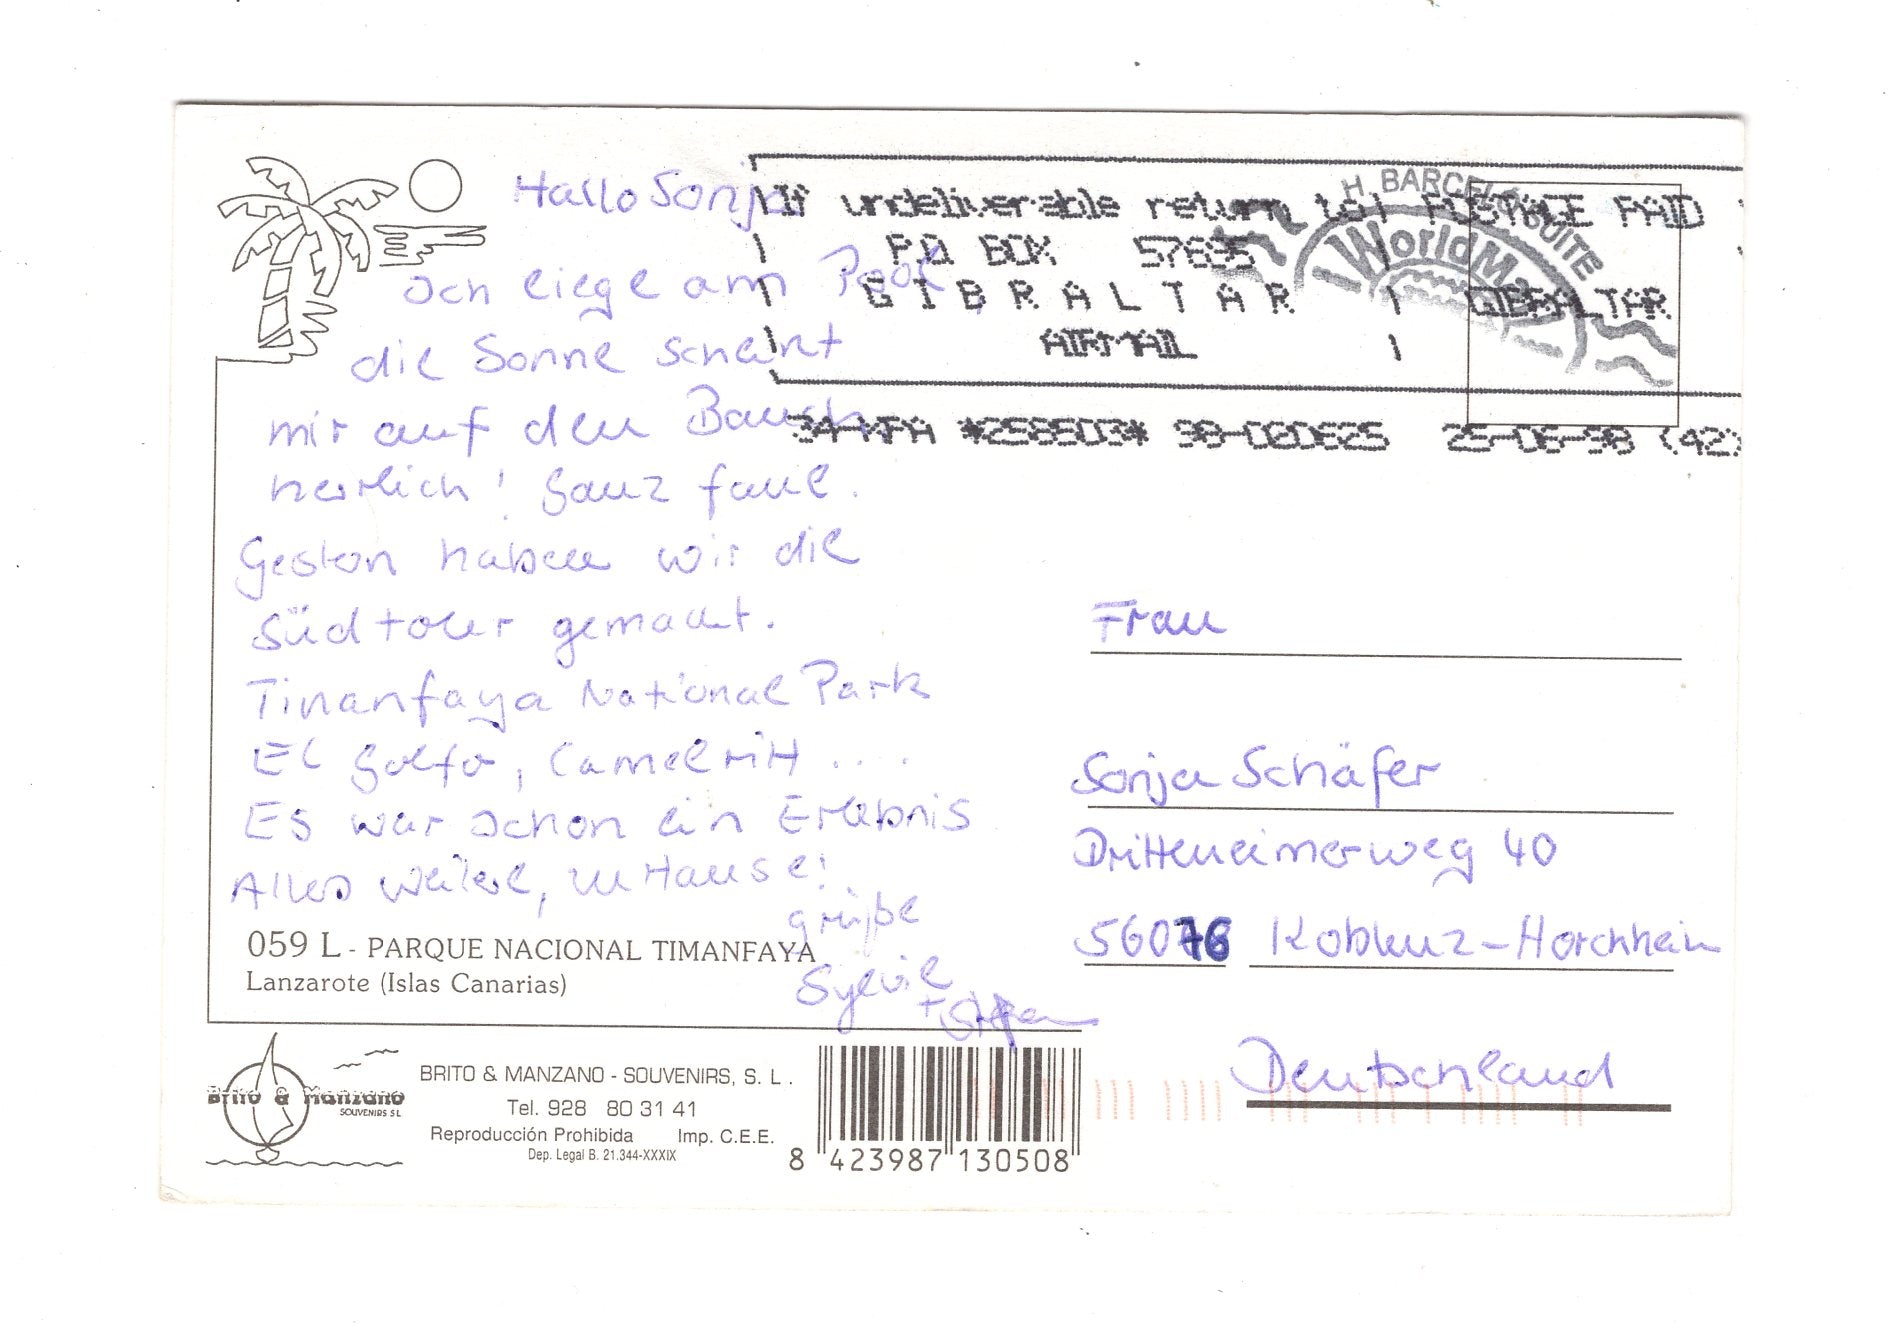 Hallo Sonja
Ich liege am Pool,
die Sonne scheint
mir auf den Bauch
herrlich! Ganz faul.
Gestern haben wir die
Südtour gemacht.
Tinanfaya National Park
El Golfo, Camelritt ....
Es war schon ein Erlebnis
Alles weitere, zu Hause!
grüße
Sylvie
+ Stefan
059 L - PARQUE NACIONAL TIMANFAYA
Lanzarote (Islas Canarias)
Brito & Manzano
SOUVENIRS SL
BRITO & MANZANO - SOUVENIRS, S. L.
Tel. 928 80 31 41
Reproducción Prohibida Imp. C.E.E.
Dep. Legal B. 21.344-XXXIX
8 423987 130508
If undeliverable return to POSTAGE PAID
PO BOX 57695
GIBRALTAR GIBRALTAR
AIRMAIL
98-000625 25-06-98 (42)
H. BARCELO SUITE
World
Frau
Sonja Schäfer
Dritteneimerweg 40
56076 Koblenz-Horchheim
Deutschland